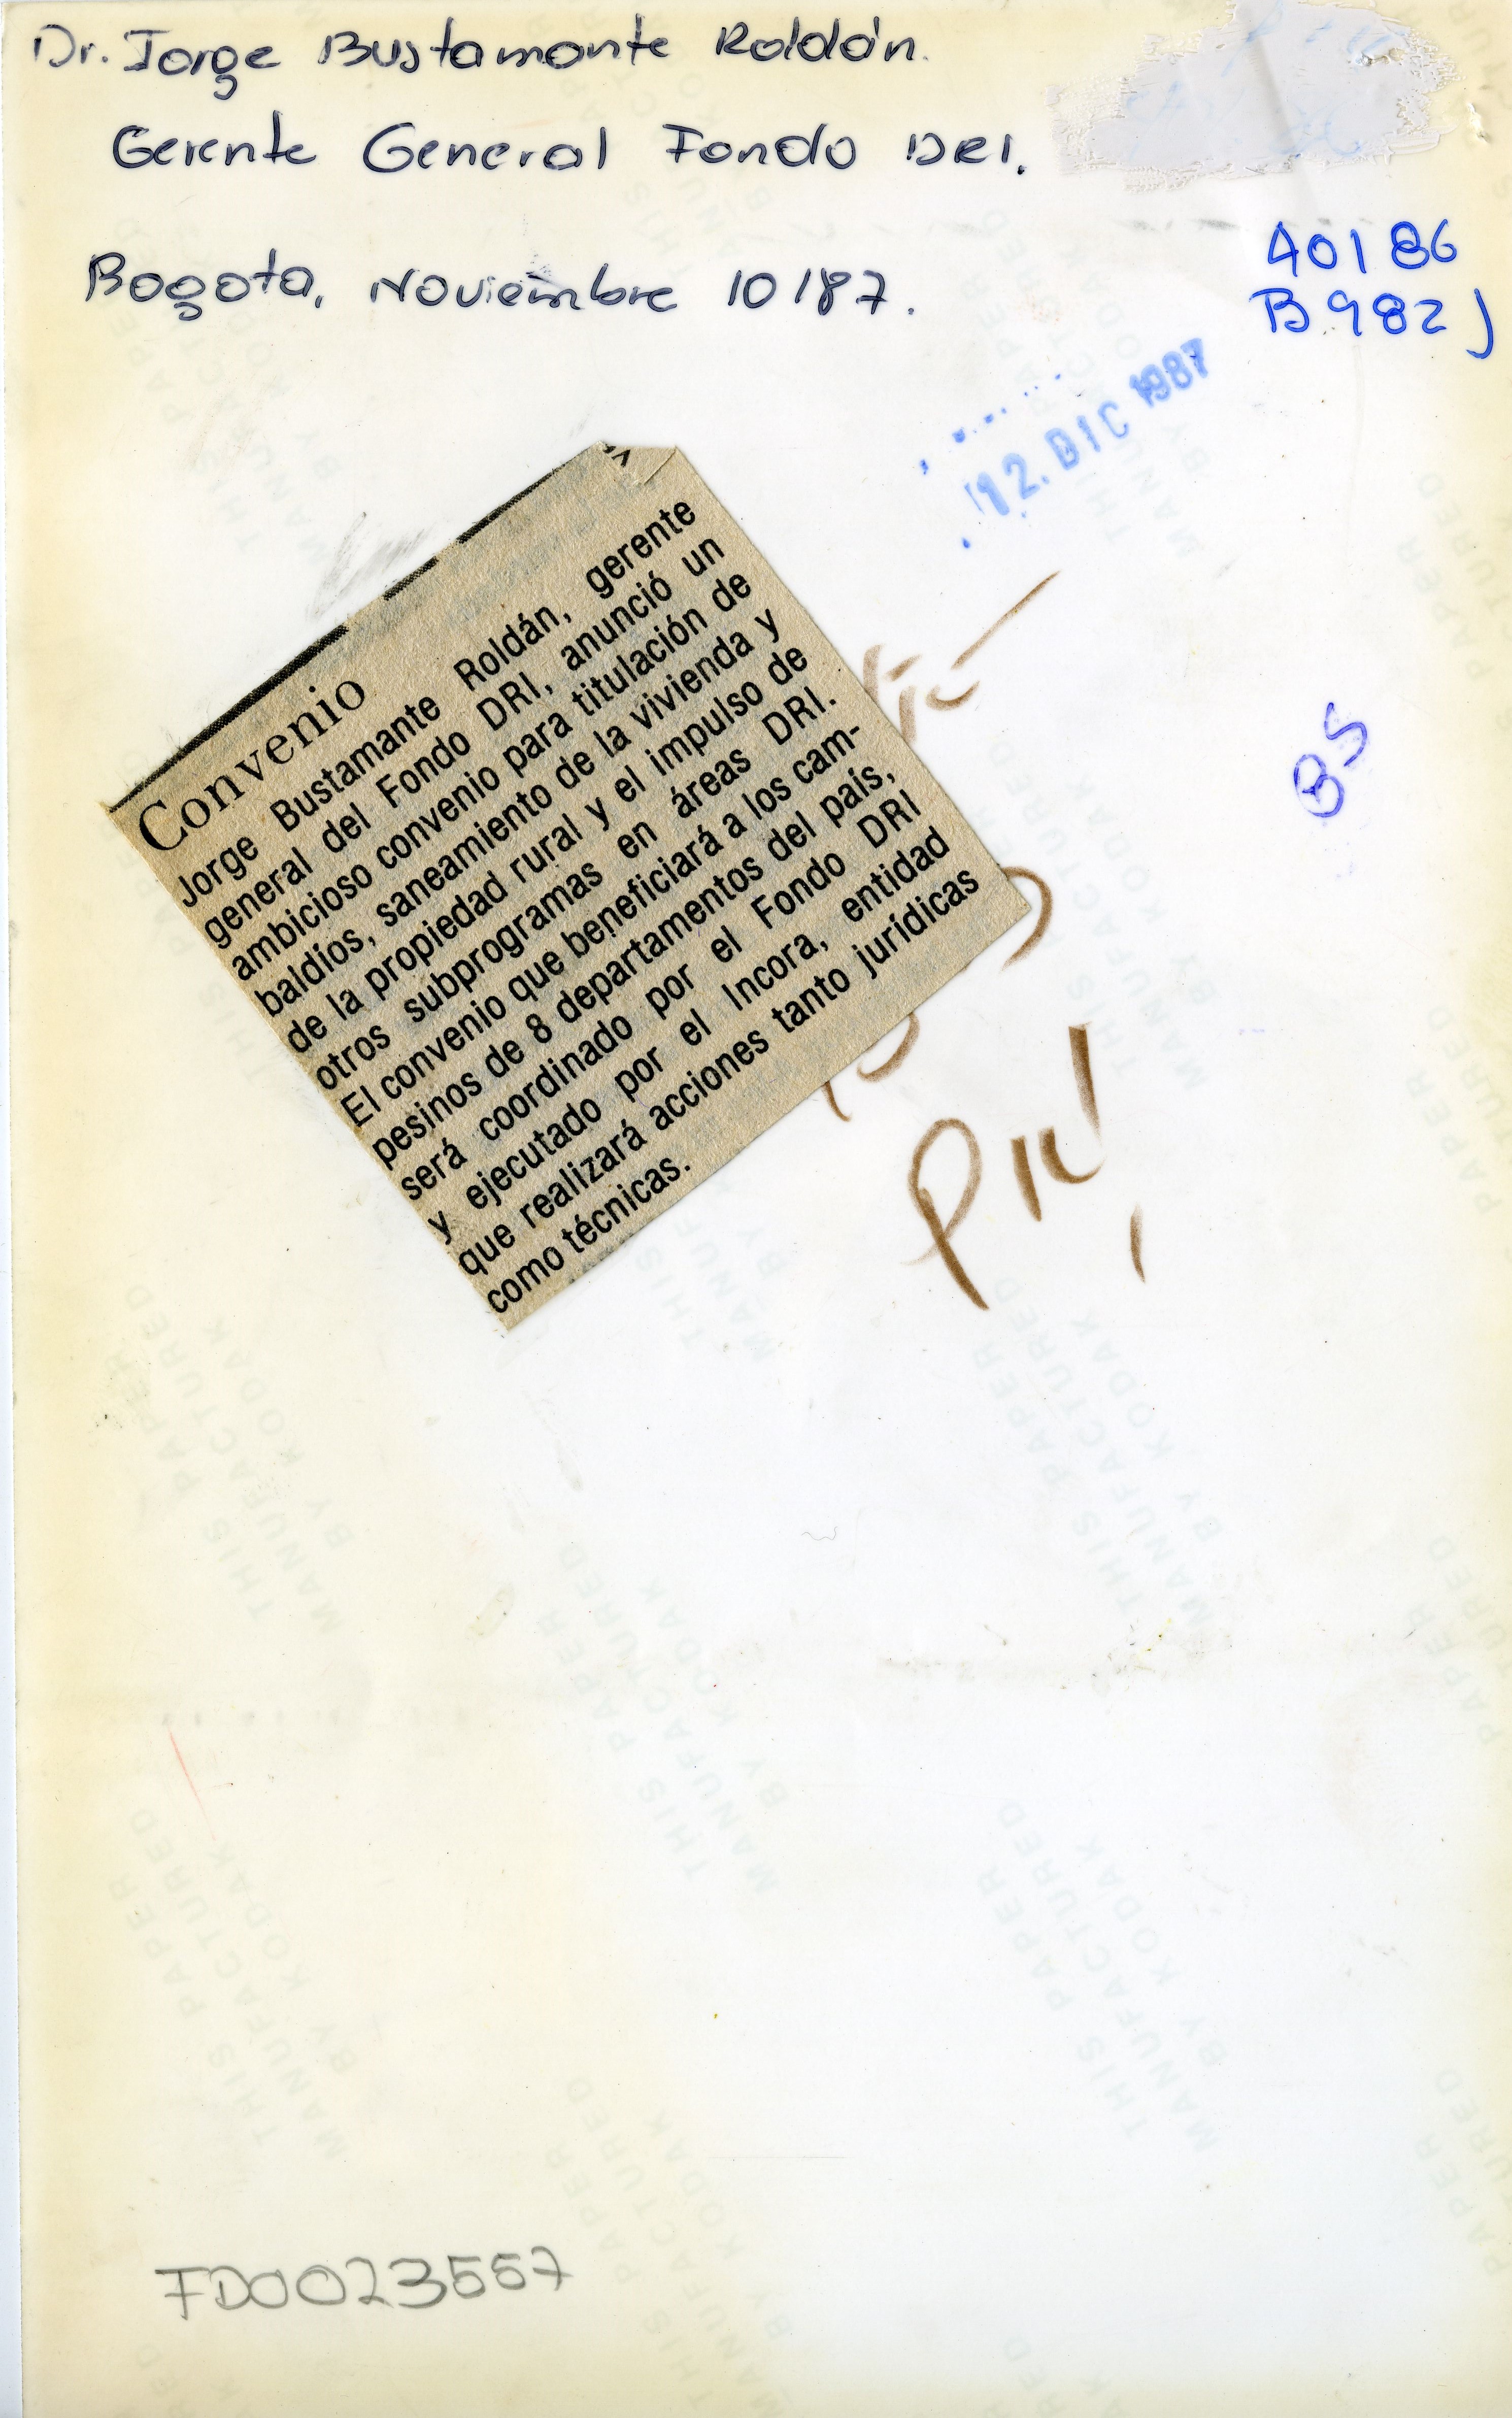 Dr. Jorge Bustamante Roldán.
Gerente General Fondo DRI.
Bogota, Noviembre 10/87.
40186
B982J
12. DIC 1987
BS
Convenio
Jorge Bustamante Roldán, gerente
general del Fondo DRI, anunció un
ambicioso convenio para titulación de
baldíos, saneamiento de la vivienda y
de la propiedad rural y el impulso de
otros subprogramas en áreas DRI.
El convenio que beneficiará a los cam-
pesinos de 8 departamentos del país,
será coordinado por el Fondo DRI
y ejecutado por el Incora, entidad
que realizará acciones tanto jurídicas
como técnicas.
FD0023557
THIS PAPER
MANUFACTURED
BY KODAK